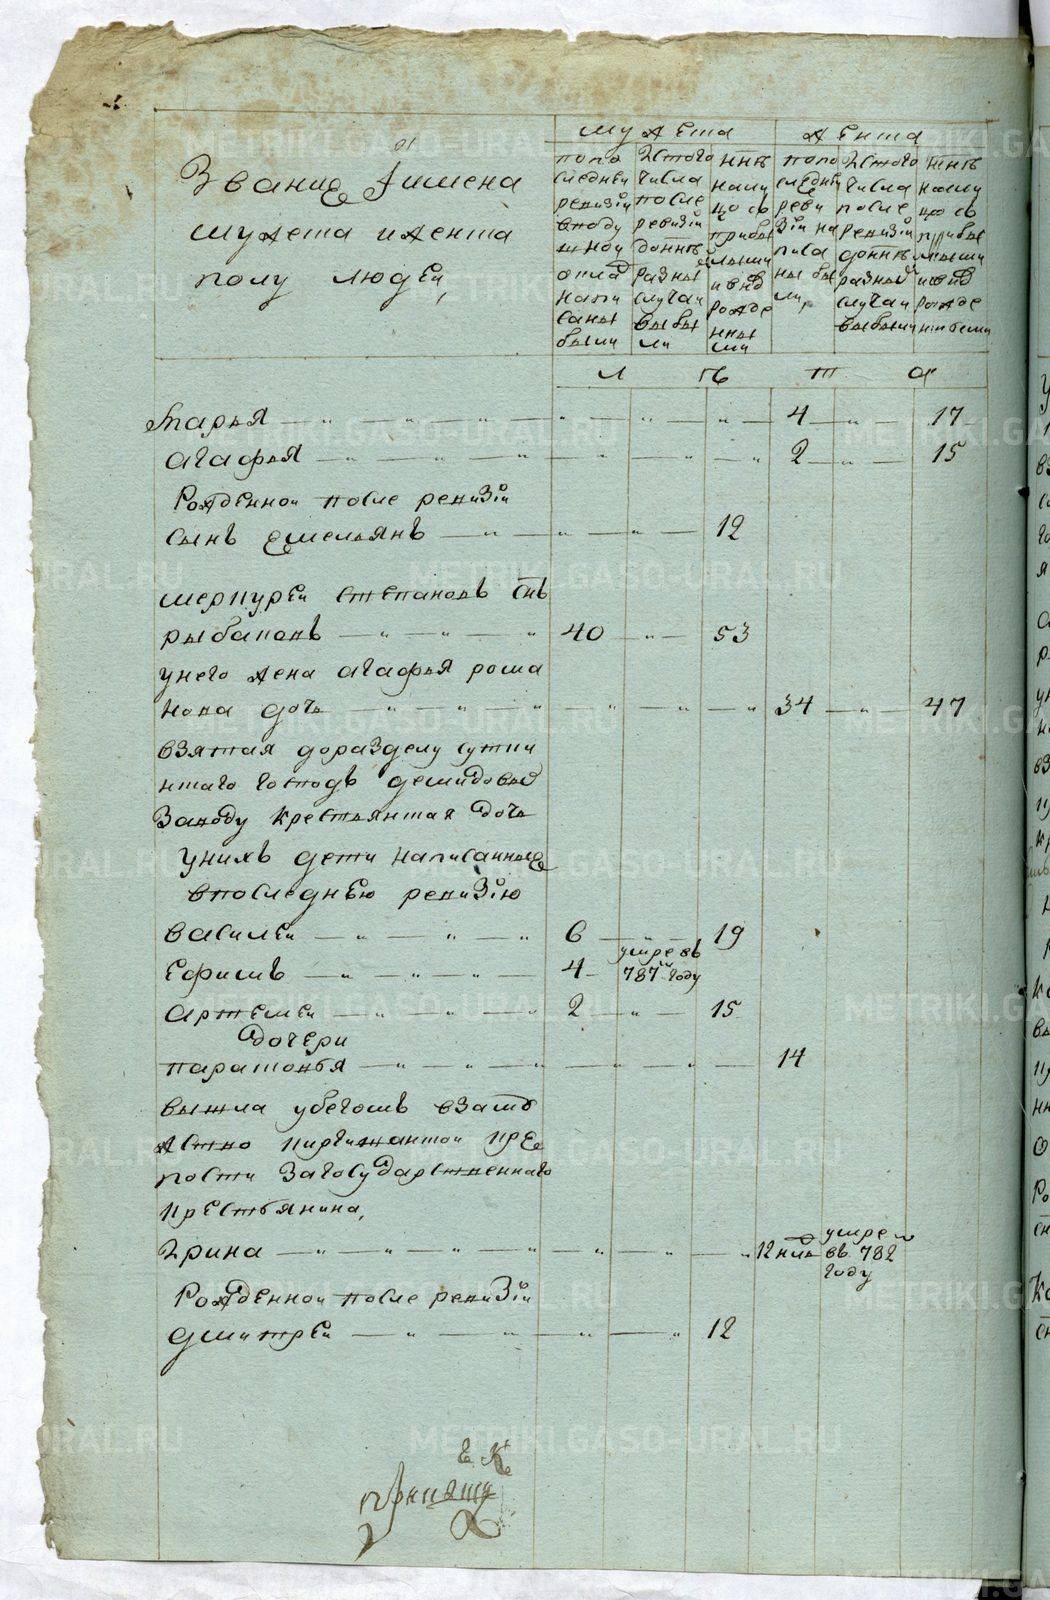 Звание и имена
мужеска и женска
полу людей,
мужеска
женска
по по
следней
ревизіи
в поду
шной
оклад
напи
саны
были
Ис того
числа
после
ревизіи
до ннѣ
разны
случаи
выбы
ли
ннѣ
нали
цо съ
прибы
лыми
и внѣ
рожде
нны
ми
по по
следнѣй
реви
зіи на
писа
ны бы
ли,
Ис того
числа
после
ревизіи
до ннѣ
разны
случаи
выбыли
ннѣ
нали
цо съ
прибы
лыми
и внѣ
рожде
нными
л ѣ т а
Марья 4 17
агафья 2 15
Рожденной после ревизіи
сынъ емельянъ 12
меркурей степановъ снъ
рыбаковъ 40 53
у него жена агафья рома
нова дочь 34 47
взятая до разделу сутки
нскаго господъ демидовых
заводу крестьянская дочь
у нихъ дети написанные
в последнѣю ревизію
василей 6 19
Ефимъ 4 умре въ 787м году
артемей 2 15
дочери
парасковья 14
вышла убегомъ в замуж
ство киргишанской кре
пости за государственнаго
крестьянина,
Ирина 12 нед умре въ 782 году
Рожденной после ревизіи
дмитрей 12